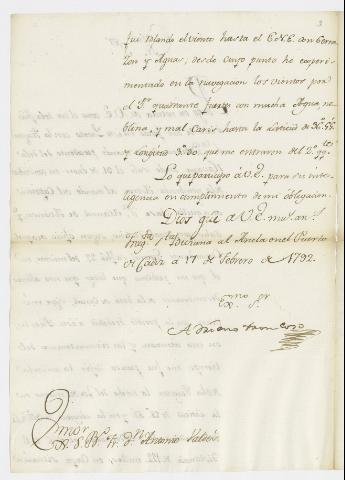 3
fué rolando el viento hasta el E.N.E. con Cerra-
zon y Agua, desde cuyo punto he experi-
mentado en la navegacion los vientos por
el 1.er quadrante fuertes con mucha Agua, ne-
blina, y mal Cariz hasta la Latitud de
y Longitud que me entraron del 2.º
Lo que participo a V.E. para su inte-
ligencia en cumplimiento de mi obligacion.
Dios gue. a V.E. mu.s an.s
Frag.ta Sta. al Ancla en el Puerto
de Cadiz a 17 de Febrero de 1792.
Exmo. Sr.
Exmo. Sr. B.o Fr. Dn. Antonio Valdes.